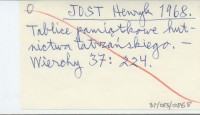 JOST Henryk 1968.
Tablice pamiątkowe hut-
nictwa tatrzańskiego. -
Wierchy 37: 224.